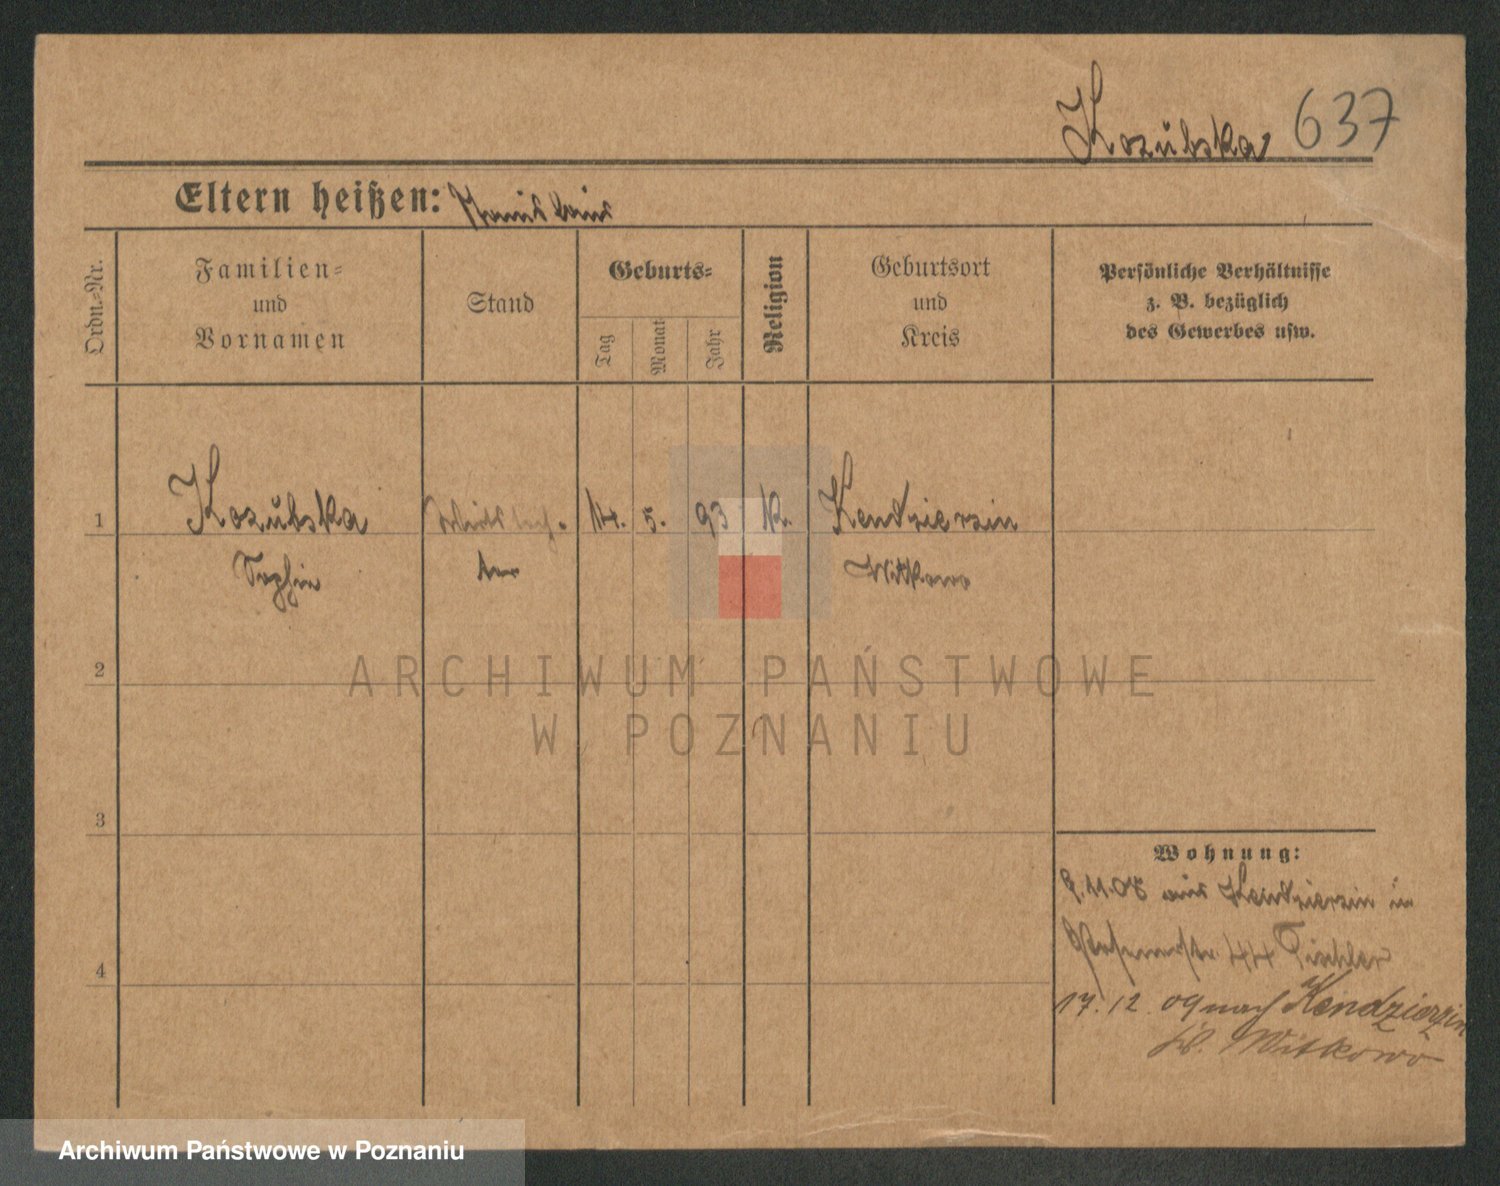 Kozubska 637
Eltern heißen: Stanislaus
Ordn.-Nr.
Familien-
und
Vornamen
Stand
Geburts-
Tag
Monat
Jahr
Religion
Geburtsort
und
Kreis
Persönliche Verhältnisse
z. B. bezüglich
des Gewerbes usw.
1 Kozubska 14. 5. 93 k. Kendzierzin
Sophie Witkowo
2
ARCHIWUM PAŃSTWOWE
W POZNANIU
3
Wohnung:
9.11.08 aus Kendzierzin in
44 Tischler
4
17.12.09 nach Kendzierzin
Witkowo
Archiwum Państwowe w Poznaniu